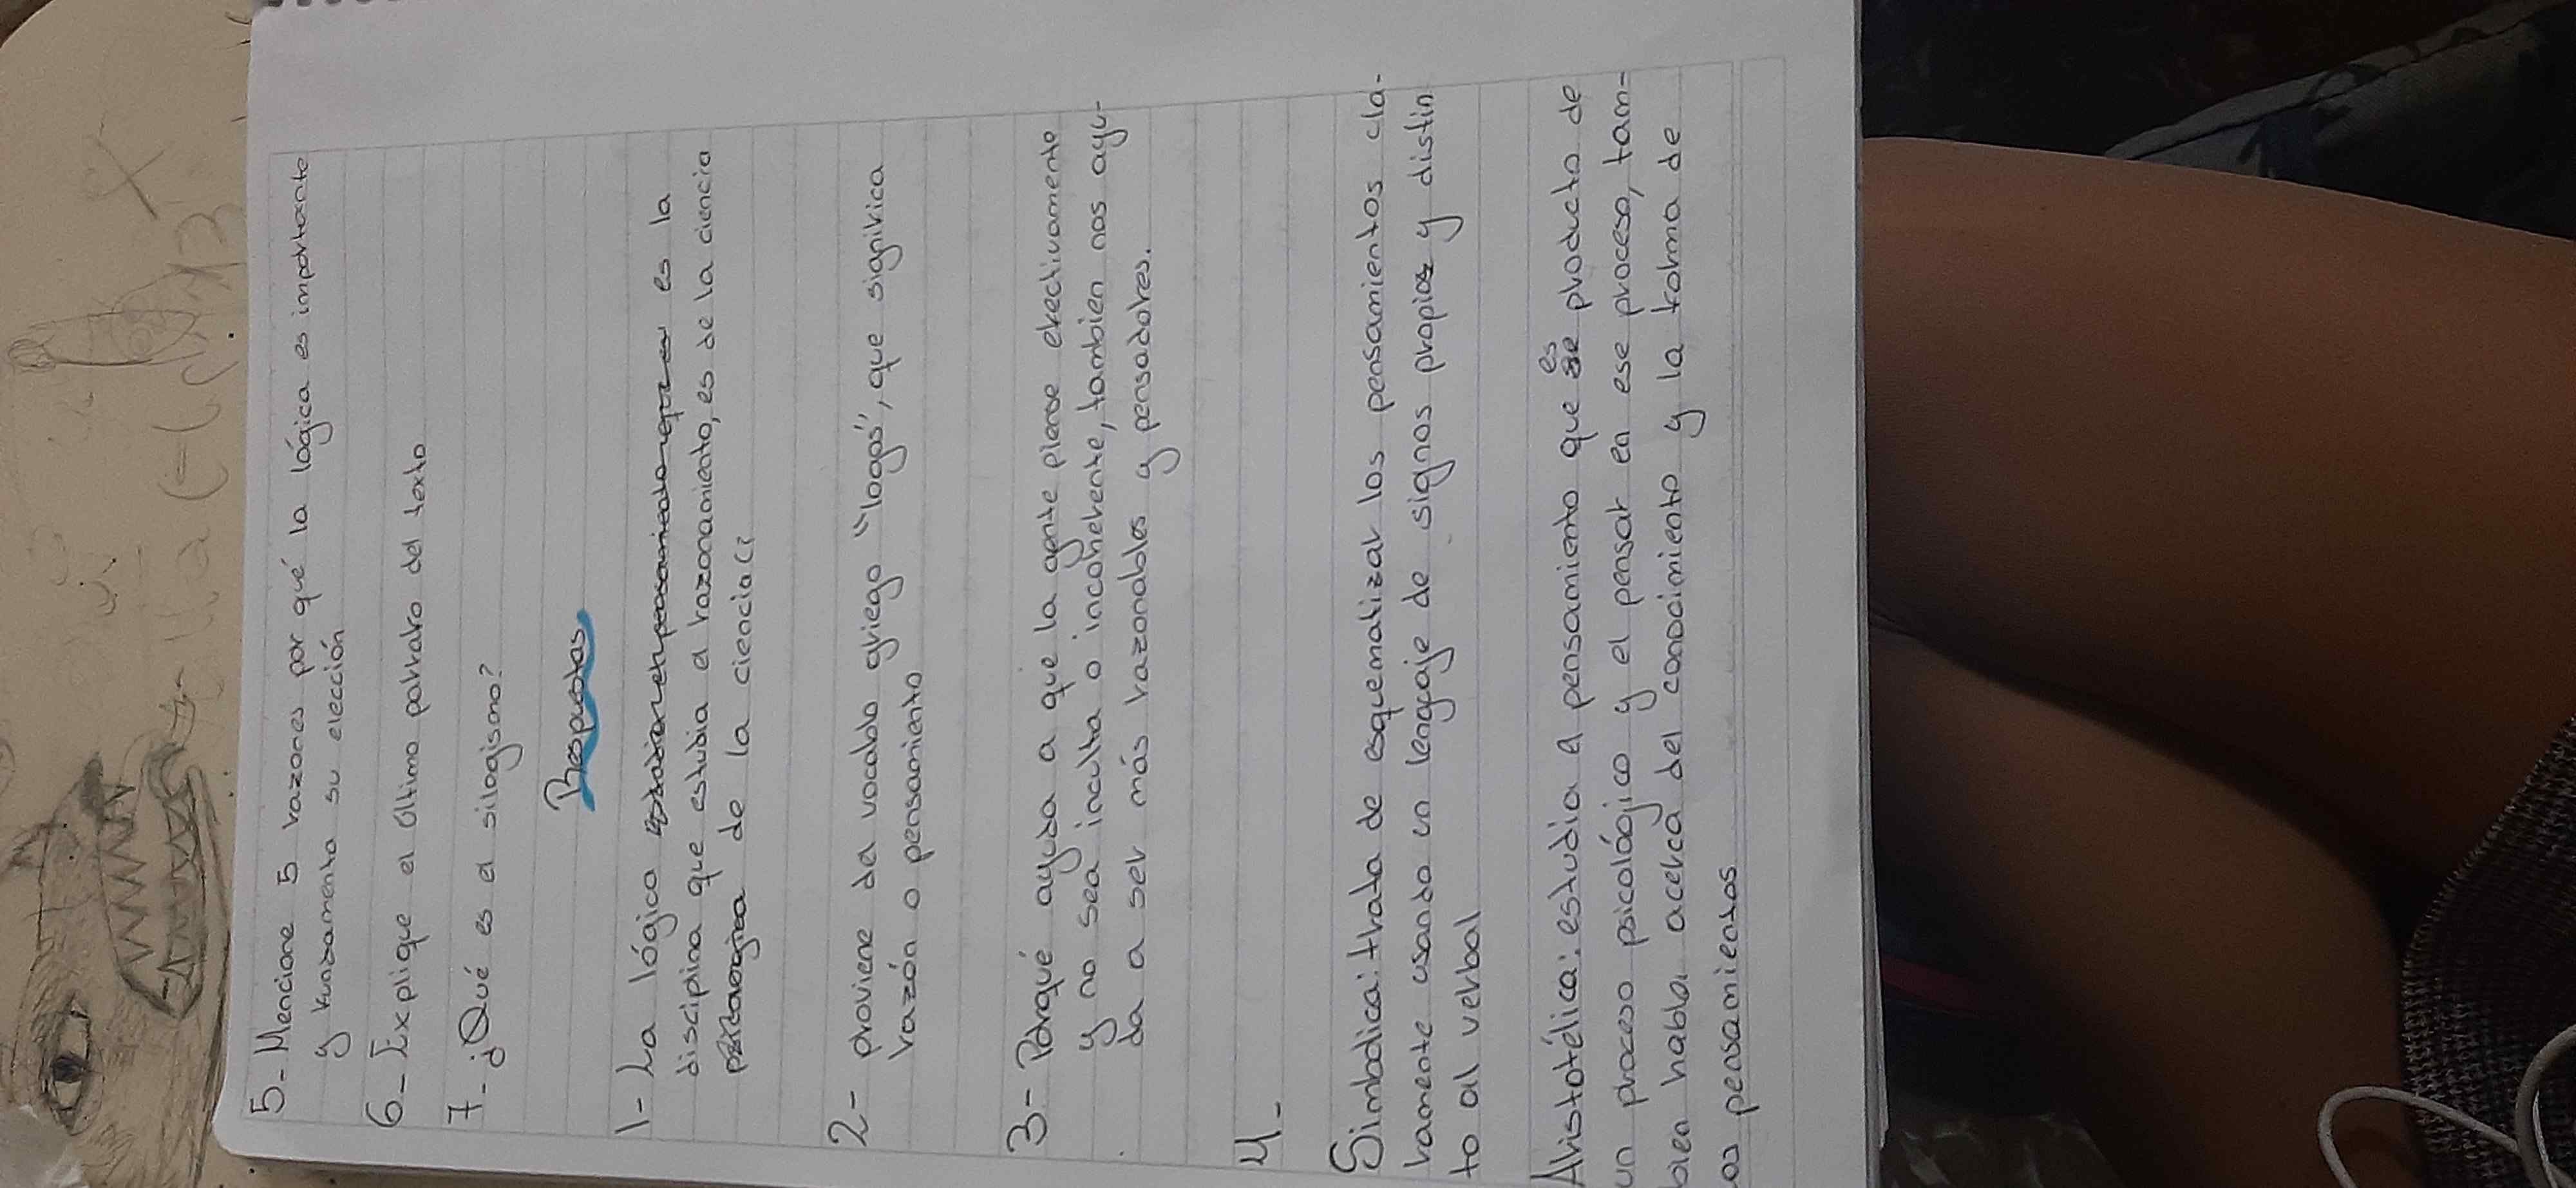 5-Mencione 5 razones por qué la lógica es importante
y fundamente su elección
6-Explique el último parrafo del texto
7-¿Qué es el silogismo?
Respuestas
1- La lógica es la
disciplina que estudia el razonamiento, es de la ciencia
de la ciencia
2- proviene del vocablo griego "logos", que significa
razón o pensamiento
3- Porqué ayuda a que la gente piense efectivamente
y no sea inculta o incoherente, tambien nos ayu-
da a ser más razonables y pensadores.
4-
Simbolica: trata de esquematizar los pensamientos cla-
ramente usando un lenguaje de signos propios y distin
to al verbal
Aristotélica: estudia el pensamiento que es producto de
un proceso psicológico y el pensar en ese proceso, tam-
bien habla acerca del conocimiento y la forma de
los pensamientos